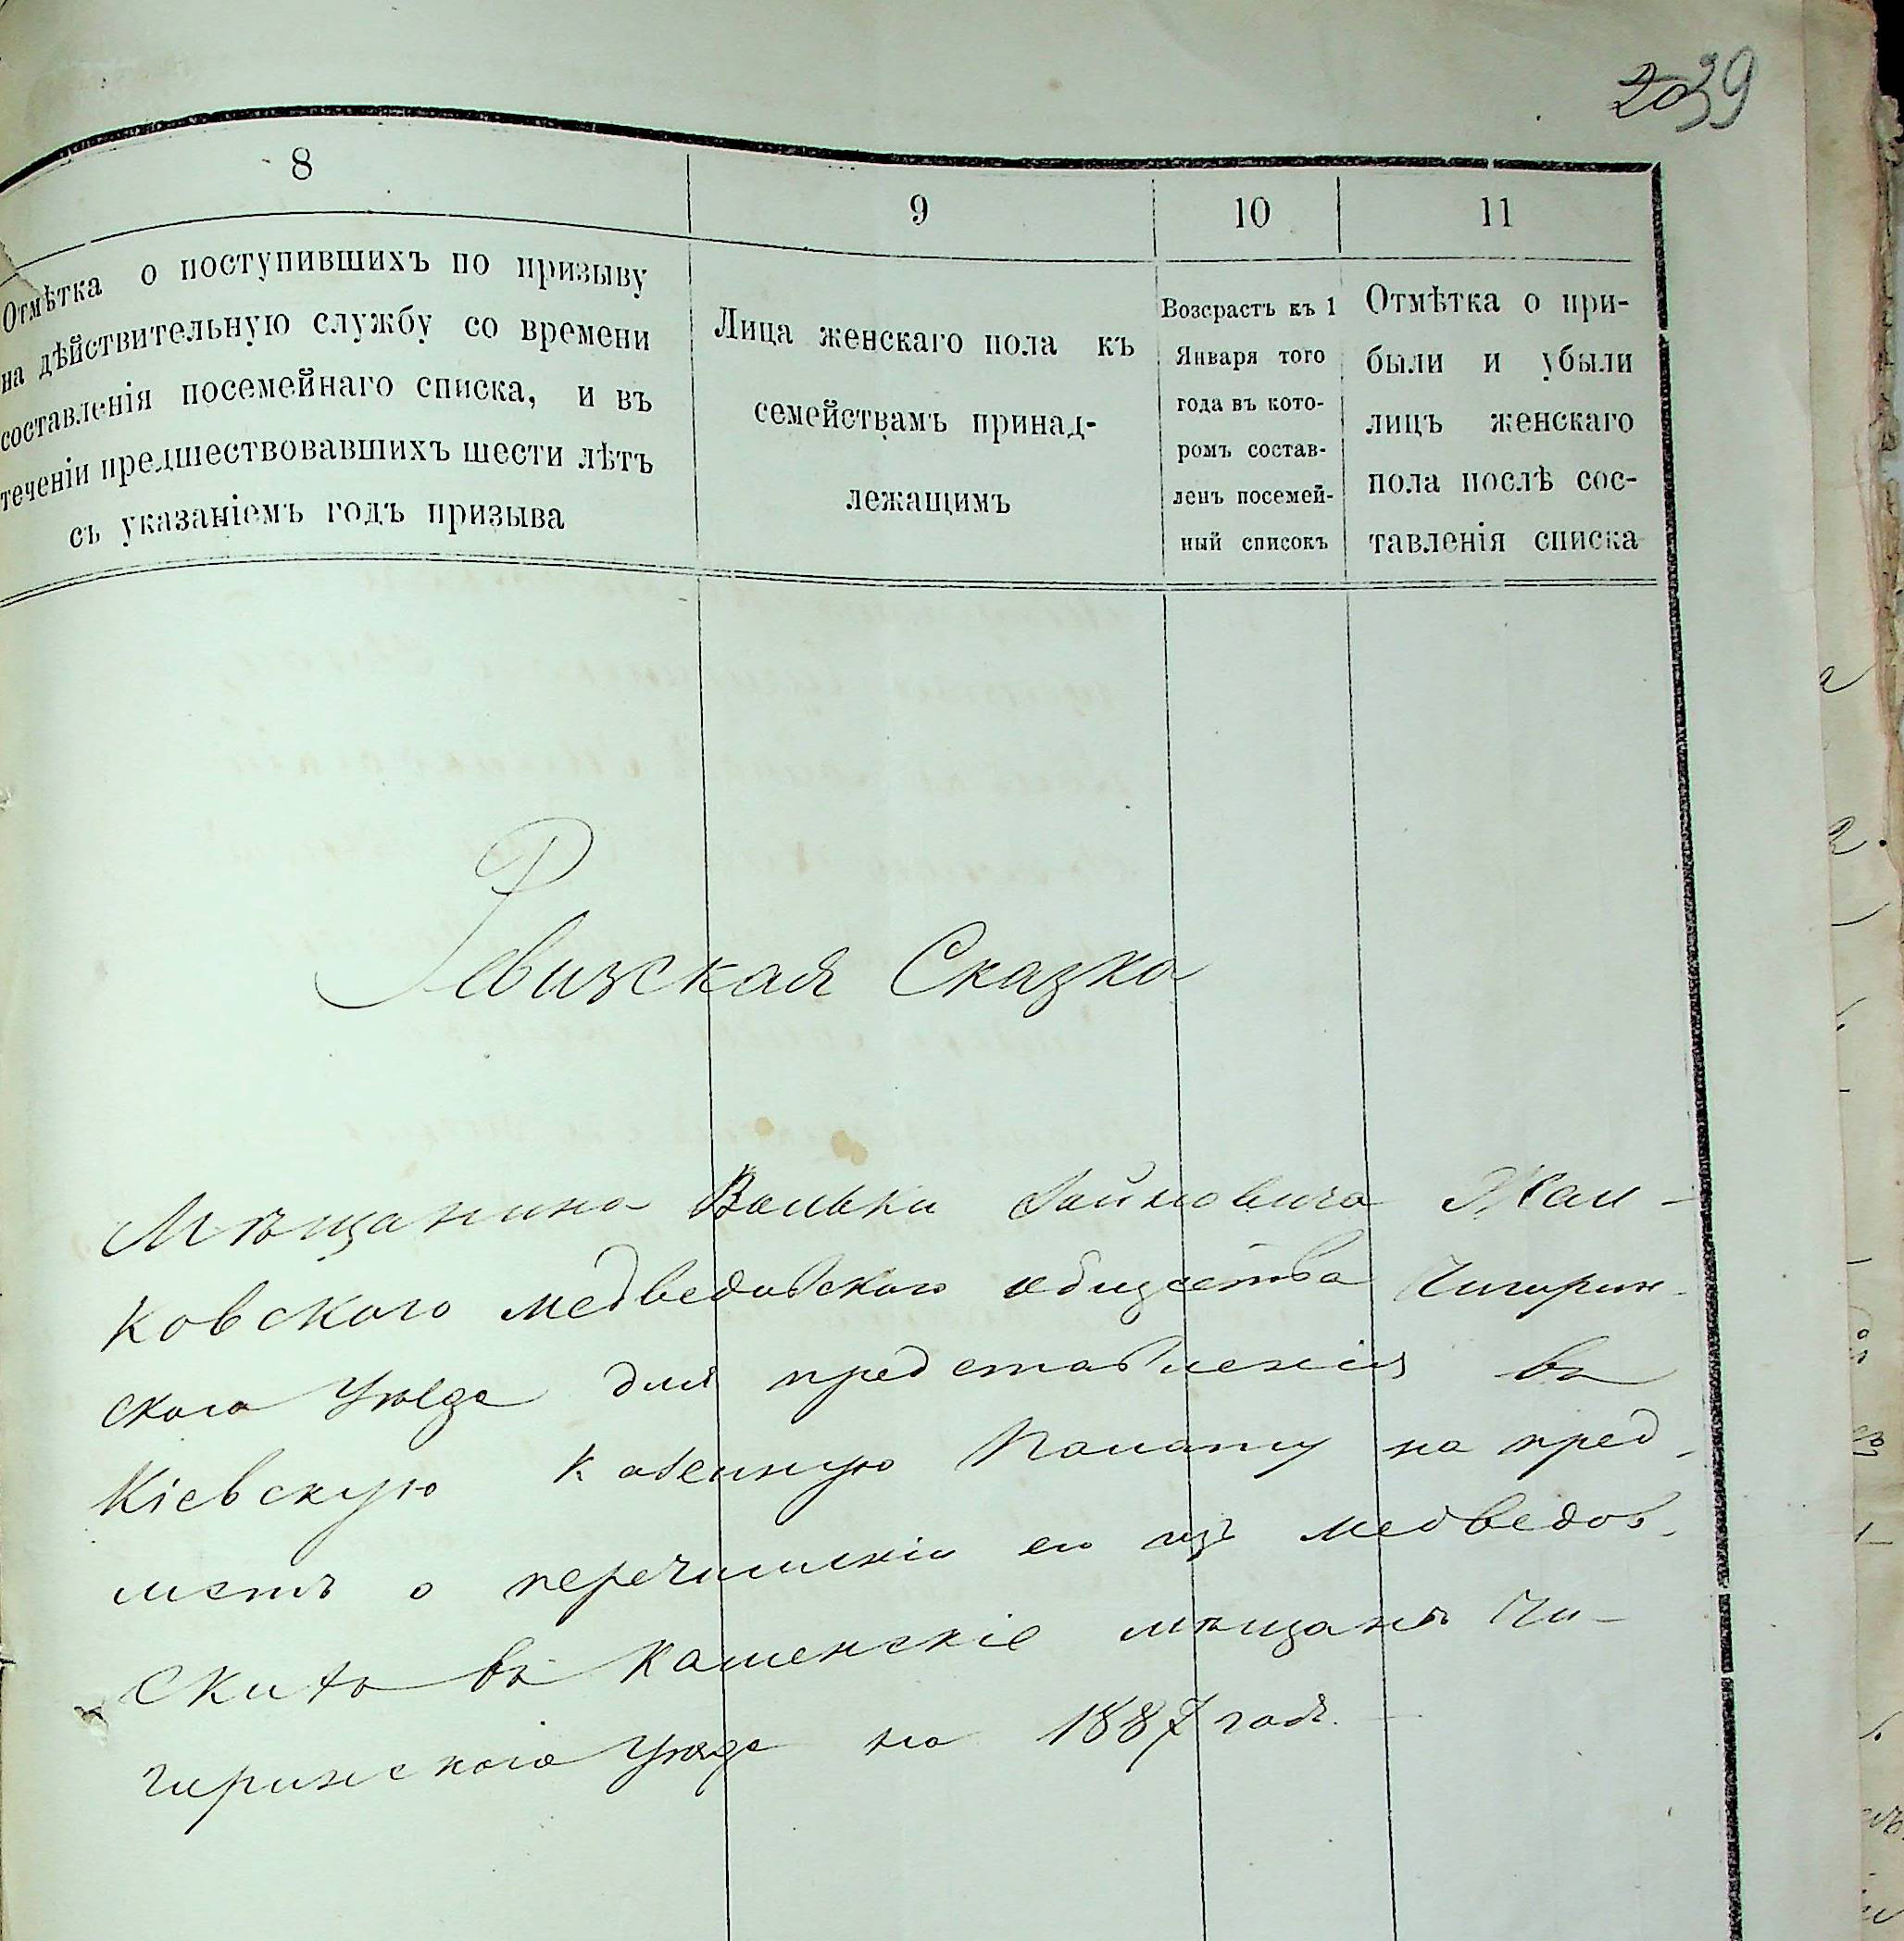 39
8
9
10
11
Отмѣтка о поступившихъ по призыву
на дѣйствительную службу со времени
составленія посемейнаго списка, и въ
теченіи предшествовавшихъ шести лѣтъ
съ указаніемъ годъ призыва
Лица женскаго пола къ
семействамъ принад-
лежащимъ
Возсрастъ къ 1
Января того
года въ кото-
ромъ состав-
ленъ посемей-
ный списокъ
Отмѣтка о при-
были и убыли
лицъ женскаго
пола послѣ сос-
тавленія списка
Ревизская Сказка
Мѣщанина Вольки
ковского медведовского общества Чигирин-
ского Уѣзда для представленія въ
Кіевскую Казенную Палату на пред-
метъ о перечисленіи его изъ медведов-
скихъ въ Каменскіе мѣщане Чи-
гиринского Уѣзда на 1887 годъ.